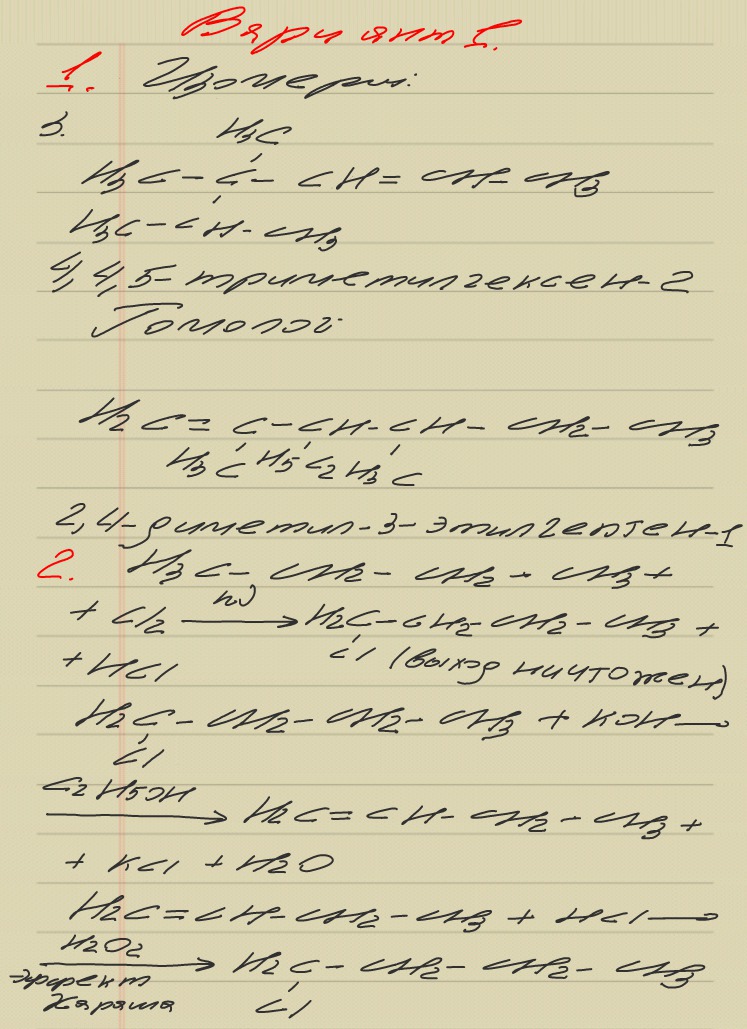 Вариант I.
1. Изомеры:
3.
H3C
H3C - C - CH = CH - CH3
H3C - CH - CH3
4,4,5-триметилгексен-2
Гомолог:
H2C = C - CH - CH - CH2 - CH3
H3C H5C2 H3C
2,4-диметил-3-этилгексен-1
2. H3C - CH2 - CH2 - CH3 +
+ Cl2 hν → H2C - CH2 - CH2 - CH3 +
+ HCl Cl (выход ничтожен)
H2C - CH2 - CH2 - CH3 + KOH →
Cl
C2H5OH → H2C = CH - CH2 - CH3 +
+ KCl + H2O
H2C = CH - CH2 - CH3 + HCl →
H2O2 → H2C - CH2 - CH2 - CH3
эффект
Хараша Cl